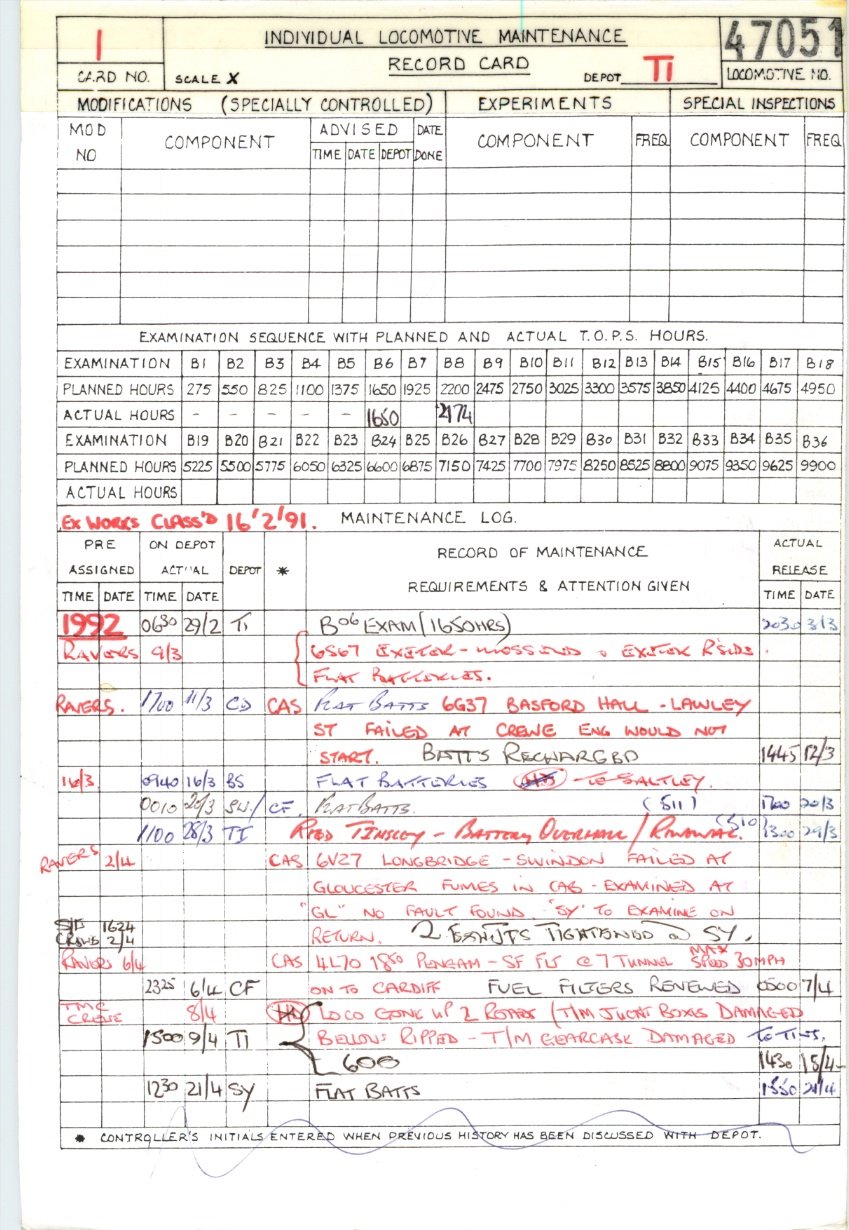 1 INDIVIDUAL LOCOMOTIVE MAINTENANCE 47051
CARD NO. SCALE X RECORD CARD DEPOT Ti LOCOMOTIVE NO.
MODIFICATIONS (SPECIALLY CONTROLLED) EXPERIMENTS SPECIAL INSPECTIONS
MOD NO COMPONENT ADVISED DATE DONE COMPONENT FREQ COMPONENT FREQ
TIME DATE DEPOT
EXAMINATION SEQUENCE WITH PLANNED AND ACTUAL T.O.P.S. HOURS.
EXAMINATION B1 B2 B3 B4 B5 B6 B7 B8 B9 B10 B11 B12 B13 B14 B15 B16 B17 B18
PLANNED HOURS 275 550 825 1100 1375 1650 1925 2200 2475 2750 3025 3300 3575 3850 4125 4400 4675 4950
ACTUAL HOURS - - - - - 1650 2174
EXAMINATION B19 B20 B21 B22 B23 B24 B25 B26 B27 B28 B29 B30 B31 B32 B33 B34 B35 B36
PLANNED HOURS 5225 5500 5775 6050 6325 6600 6875 7150 7425 7700 7975 8250 8525 8800 9075 9350 9625 9900
ACTUAL HOURS
EX WORKS CLASS'D 16'2'91. MAINTENANCE LOG.
PRE ASSIGNED ON DEPOT ACTUAL DEPOT * RECORD OF MAINTENANCE ACTUAL RELEASE
TIME DATE TIME DATE REQUIREMENTS & ATTENTION GIVEN TIME DATE
1992 0630 29/2 Ti B06 EXAM (1650HRS) 2030 3/3
RAVERS 9/3 6S67 EXETER - MOSSEND @ EXETER R'SIDE.
FLAT BATTERIES.
RAVERS. 1700 11/3 CD CAS FLAT BATTS 6G37 BASFORD HALL - LAWLEY
ST FAILED AT CREWE ENG WOULD NOT
START. BATTS RECHARGED 1445 12/3
16/3 0940 16/3 BS FLAT BATTERIES TO SALTLEY.
0010 20/3 SW/CF. FLAT BATTS. (511) 1700 20/3
1100 28/3 TI REQD TINSLEY - BATTERY OVERHAUL / RENEWAL. (510) 1300 29/3
RAVERS 2/4 CAS 6V27 LONGBRIDGE - SWINDON FAILED AT
GLOUCESTER FUMES IN CAB - EXAMINED AT
"GL" NO FAULT FOUND. "SY" TO EXAMINE ON
1624 2/4 RETURN. 2 EXH JTS TIGHTENED @ SY.
RAVERS 6/4 CAS 4L70 1850 PENGAM - SF FLT @ 7 TUNNEL MAX SPEED 30MPH
2325 6/4 CF ON TO CARDIFF FUEL FILTERS RENEWED 0500 7/4
TMC CREWE 8/4 LOCO GONE UP 2 ROADS (T/M JUCNT BOXES DAMAGED
1500 9/4 TI BELLOWS RIPPED - T/M GEARCASE DAMAGED TO TINS.
600 1430 15/4
1230 21/4 SY FLAT BATTS 1550 21/4
* CONTROLLER'S INITIALS ENTERED WHEN PREVIOUS HISTORY HAS BEEN DISCUSSED WITH DEPOT.